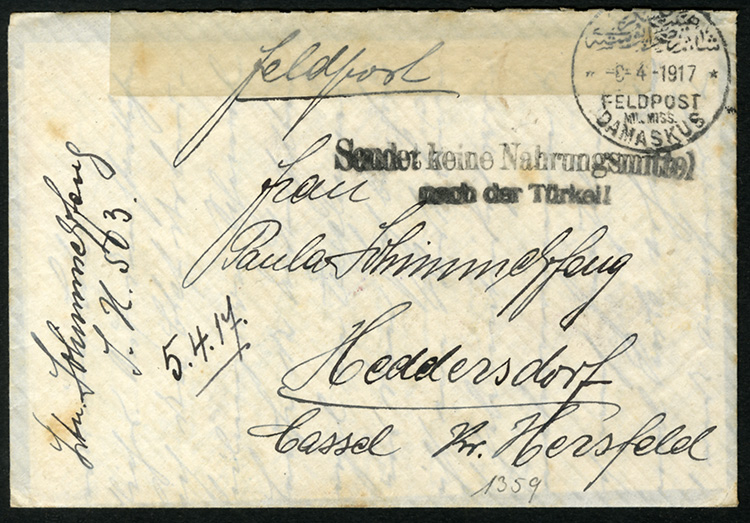 Feldpost
4-1917
FELDPOST
MIL. MISS.
DAMASKUS
Sendet keine Nahrungsmittel
nach der Türkei!
Frau
Paula Schimmelpfeng
Heddersdorf
Cassel Kr. Hersfeld
1359
Schimmelpfeng
503.
5.4.17.